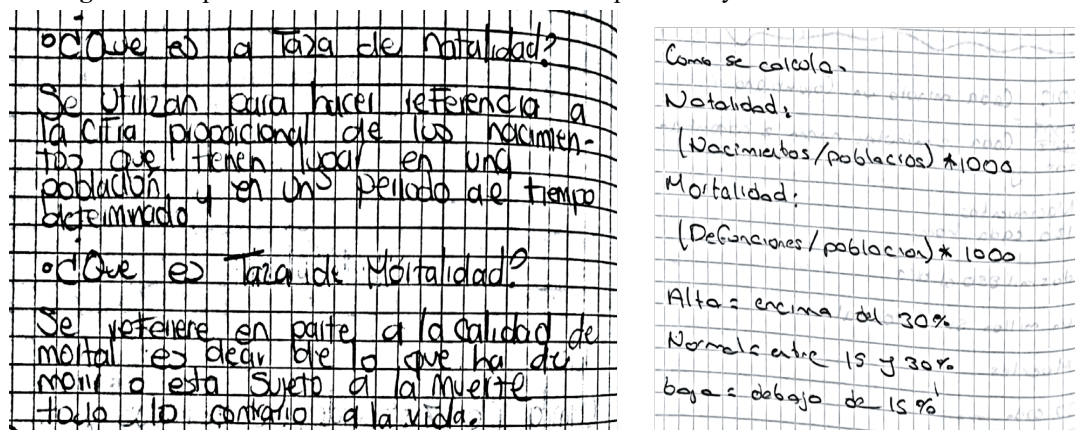 •¿Que es la Taza de natalidad?
Se Utilizan para hacer referencia a
la cifra propocional de los nacimien-
tos que tienen lugar en una
población y en uns periodo de tiempo
determinado
•¿Que es Taza de Mortalidad?
Se refenere en parte a la calidad de
mortal es decir de lo que ha de
morir o esta sujeto a la muerte
todo lo contrario a la vida.
Como se calcula.
Natalidad:
(Nacimientos/poblacios)*1000
Mortalidad:
(Defunciones/poblacion)* 1000
Alta = encima del 30%
Normal = entre 15 y 30%
baja = debajo de 15%